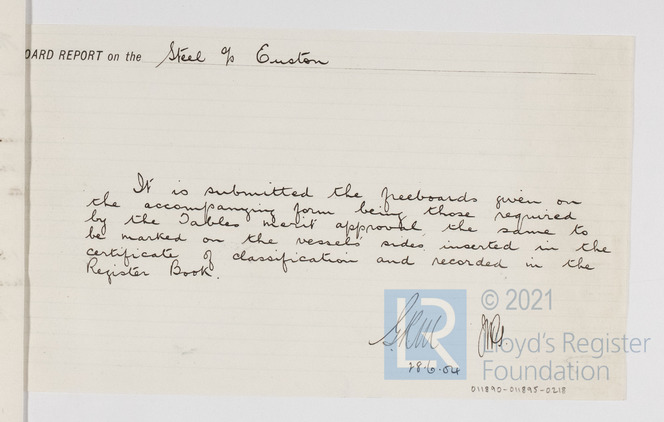 OARD REPORT on the Steel s/s Euston
It is submitted the freeboards given on
the accompanying form being those required
by the Tables merit approval, the same to
be marked on the vessel's sides, inserted in the
certificate of classification and recorded in the
Register Book.
LR © 2021
Lloyd's Register
Foundation
28.6.04
011890-011895-0218